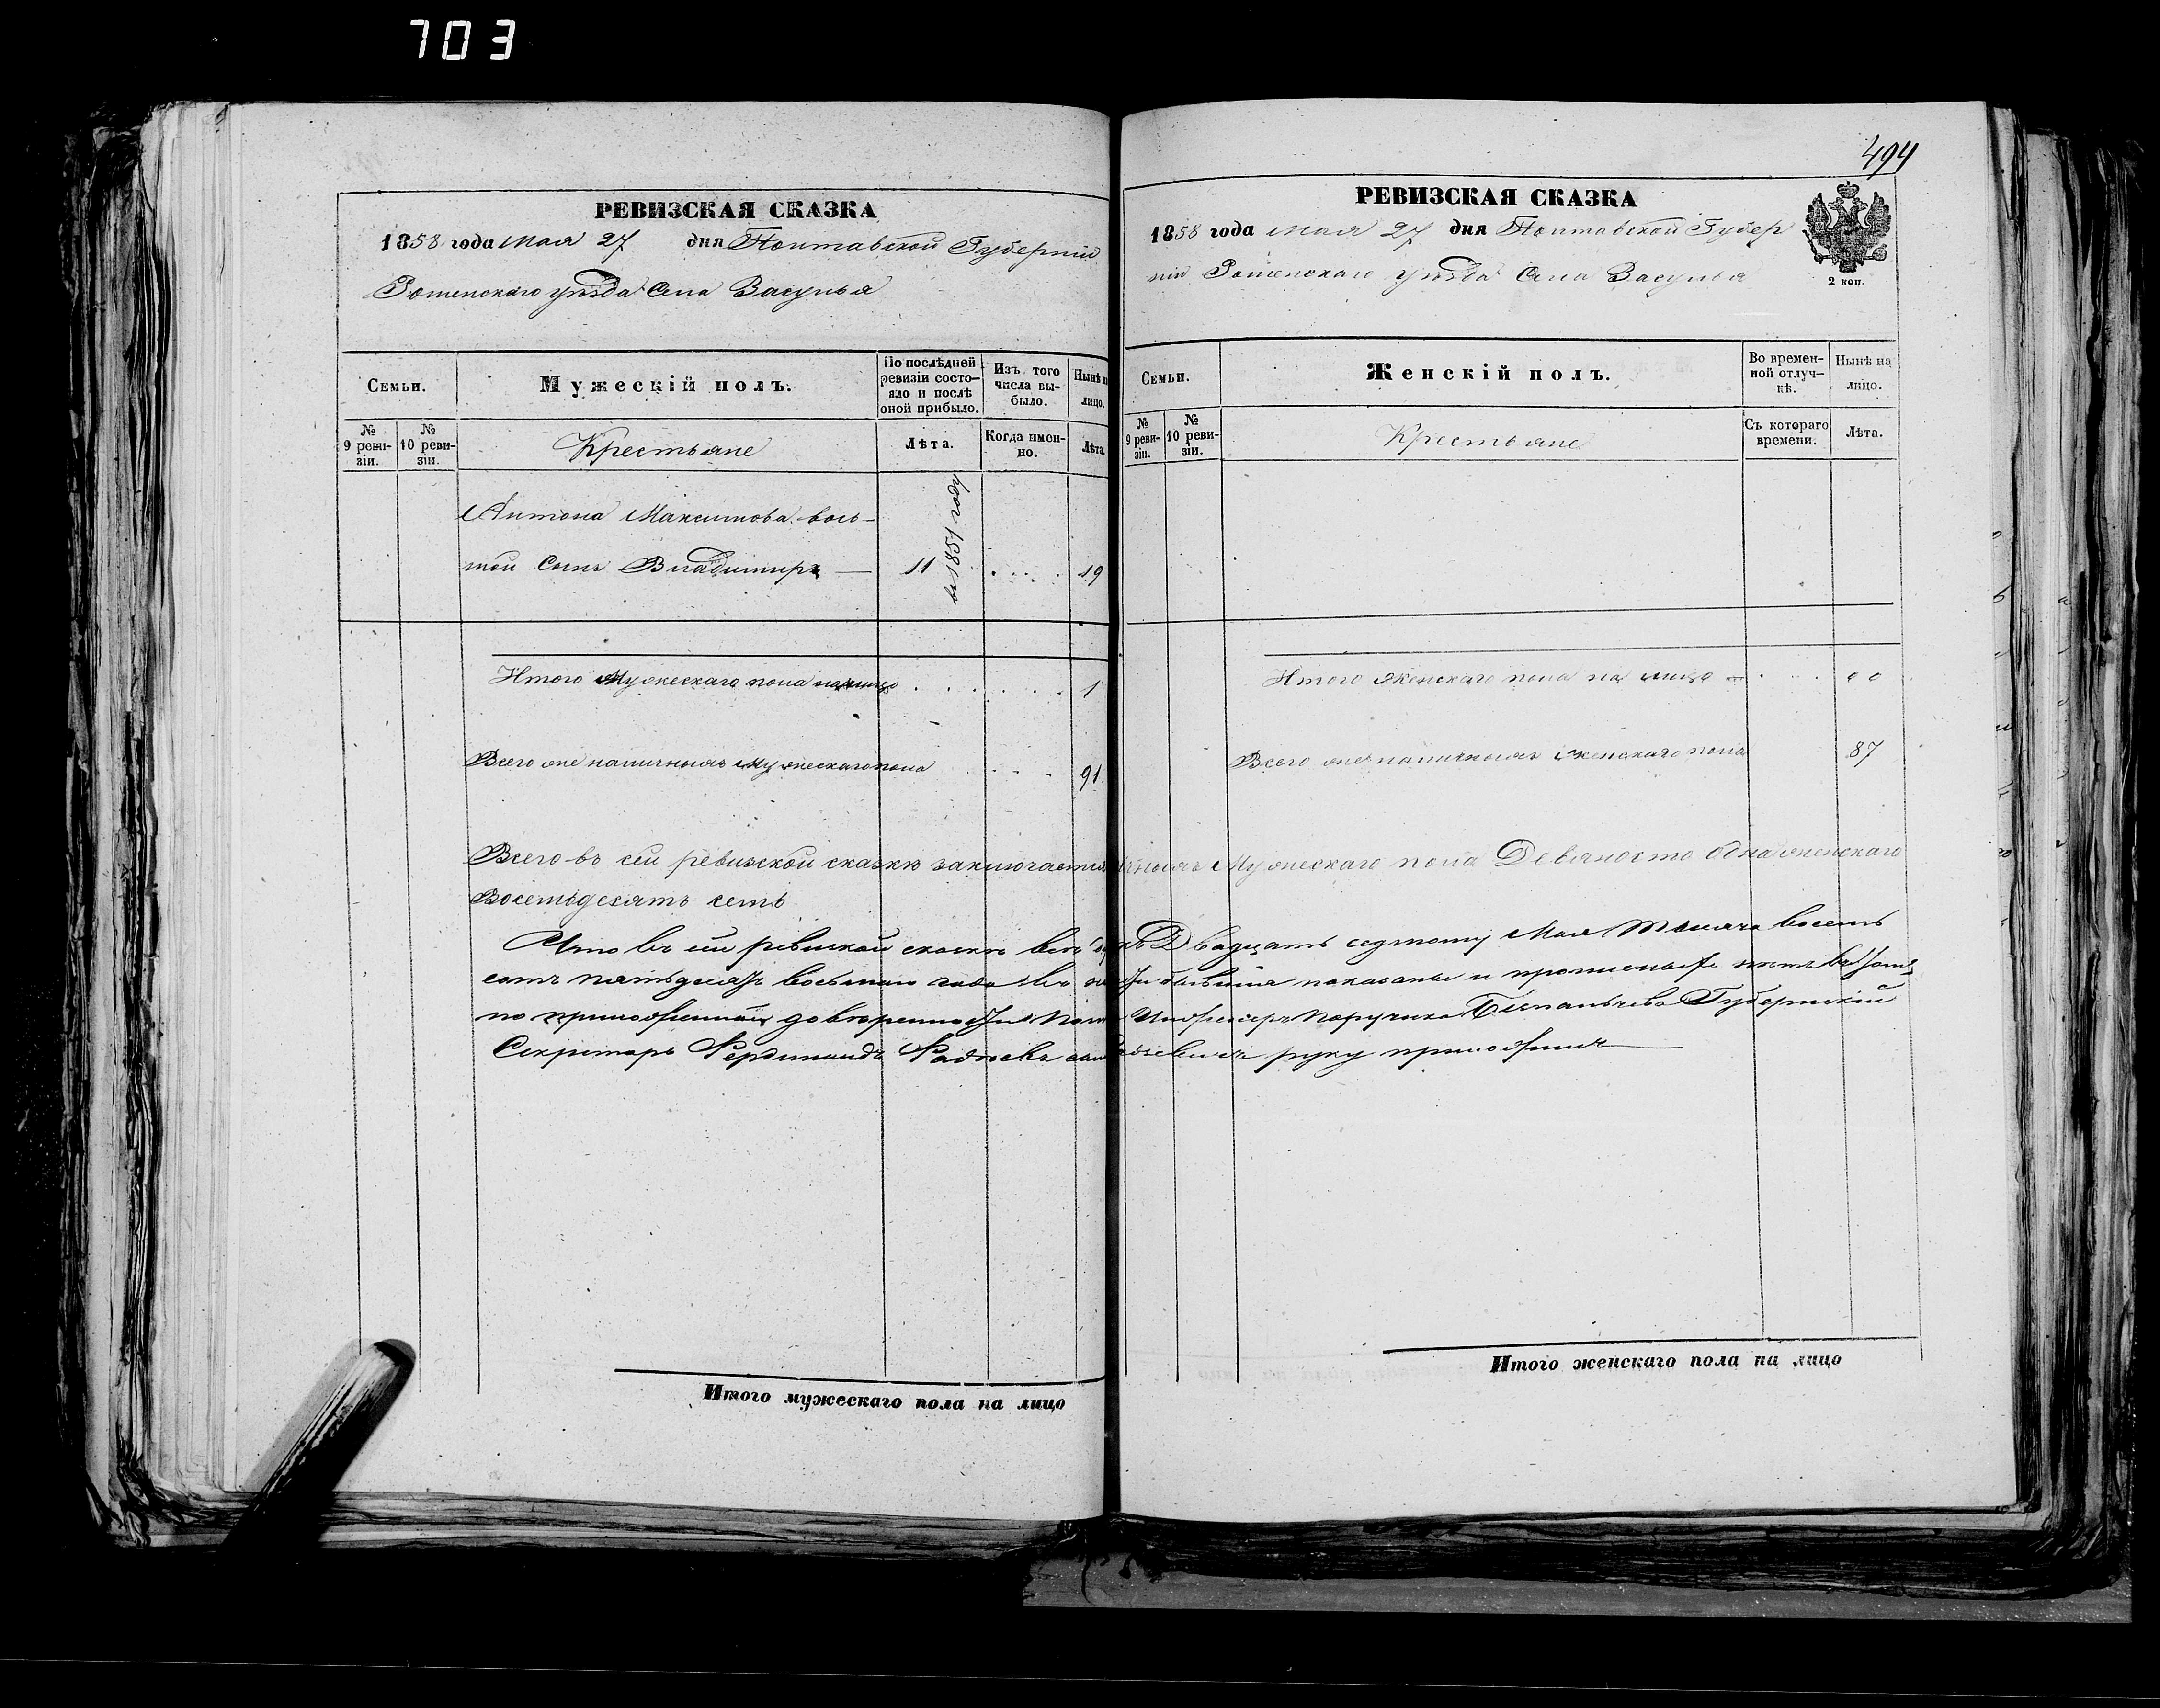 703
494
РЕВИЗСКАЯ СКАЗКА
1858 года мая 27 дня Полтавской Губерніи
Роменскаго уѣзда Села Засулья
Семьи.
Мужескій полъ.
По послѣдней ревизіи состояло и послѣ оной прибыло.
Изъ того числа выбыло.
Нынѣ на лицо.
№ 9 ревизіи.
№ 10 ревизіи.
Крестьяне
Лѣта.
Когда именно.
Лѣта.
Антона Максимова вось-
мой Сынъ Владимиръ — 11 19
1851 году
Итого Мужескаго пола налицо . . . . . . . 1
Всего же наличныхъ Мужескаго пола . . . 91.
РЕВИЗСКАЯ СКАЗКА
1858 года мая 27 дня Полтавской Губер
ніи Роменскаго уѣзда Села Засулья
2 коп.
Семьи.
Женскій полъ.
Во временной отлучкѣ.
Нынѣ на лицо.
№ 9 ревизіи.
№ 10 ревизіи.
Крестьяне
Съ котораго времени.
Лѣта.
Итого Женскаго пола на лицо . . . 0 0
Всего же наличныхъ Женскаго пола 87
Всего въ сей ревизской сказкѣ заключается Мужескаго пола Девяносто одна женскаго
Восемьдесятъ семь
Что въ сей ревизской сказкѣ всѣ Двадцать седьмому Мая Тысяча восемь
сотъ пятьдесятъ восьмаго года показаны и прописныхъ нѣтъ въ томъ
по приложенной довѣренности Инженеръ Поручика Губернскій
Секретарь Фердинандъ руку приложилъ
Итого мужескаго пола на лицо
Итого женскаго пола на лицо